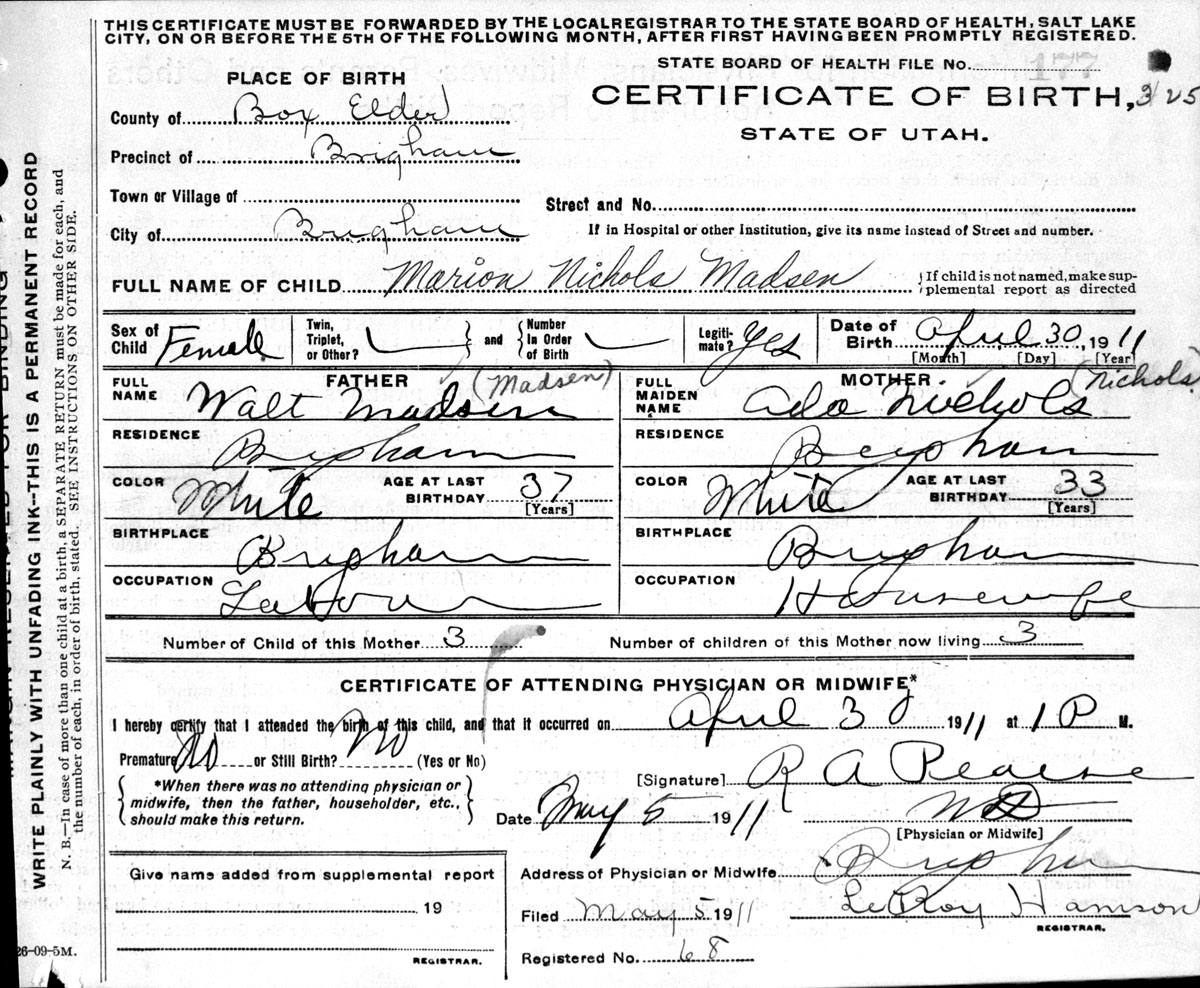 THIS CERTIFICATE MUST BE FORWARDED BY THE LOCAL REGISTRAR TO THE STATE BOARD OF HEALTH, SALT LAKE
CITY, ON OR BEFORE THE 5TH OF THE FOLLOWING MONTH, AFTER FIRST HAVING BEEN PROMPTLY REGISTERED.
STATE BOARD OF HEALTH FILE No. 177
PLACE OF BIRTH
CERTIFICATE OF BIRTH, 325
STATE OF UTAH.
County of Box Elder
Precinct of Brigham
Town or Village of
Street and No.
City of Brigham
If in Hospital or other Institution, give its name instead of Street and number.
FULL NAME OF CHILD Marion Nichols Madsen
{If child is not named, make sup-
plemental report as directed
Sex of Child Female
Twin, Triplet, or Other?
and
Number In Order of Birth
Legiti-mate? Yes
Date of Birth April 30, 1911
[Month] [Day] [Year]
FATHER
FULL NAME Walt Madsen (Madsen)
RESIDENCE Brigham
COLOR White
AGE AT LAST BIRTHDAY 37
[Years]
BIRTHPLACE Brigham
OCCUPATION Labour
MOTHER
FULL MAIDEN NAME Ada Nichols (Nichols)
RESIDENCE Brigham
COLOR White
AGE AT LAST BIRTHDAY 33
[Years]
BIRTHPLACE Brigham
OCCUPATION Housewife
Number of Child of this Mother 3
Number of children of this Mother now living 3
CERTIFICATE OF ATTENDING PHYSICIAN OR MIDWIFE*
I hereby certify that I attended the birth of this child, and that it occurred on April 30 1911 at 1 P M.
Premature No or Still Birth? No (Yes or No)
{*When there was no attending physician or
midwife, then the father, householder, etc.,
should make this return.}
[Signature] R A Pearse
Date May 5 1911
MD
[Physician or Midwife]
Address of Physician or Midwife Brigham
Filed May 5 1911 LeRoy Harrison
REGISTRAR.
Registered No. 68
Give name added from supplemental report
19
REGISTRAR.
26-09-5M.
MARGIN RESERVED FOR BINDING
WRITE PLAINLY WITH UNFADING INK--THIS IS A PERMANENT RECORD
N. B.—In case of more than one child at a birth, a SEPARATE RETURN must be made for each, and
the number of each, in order of birth, stated. SEE INSTRUCTIONS ON OTHER SIDE.